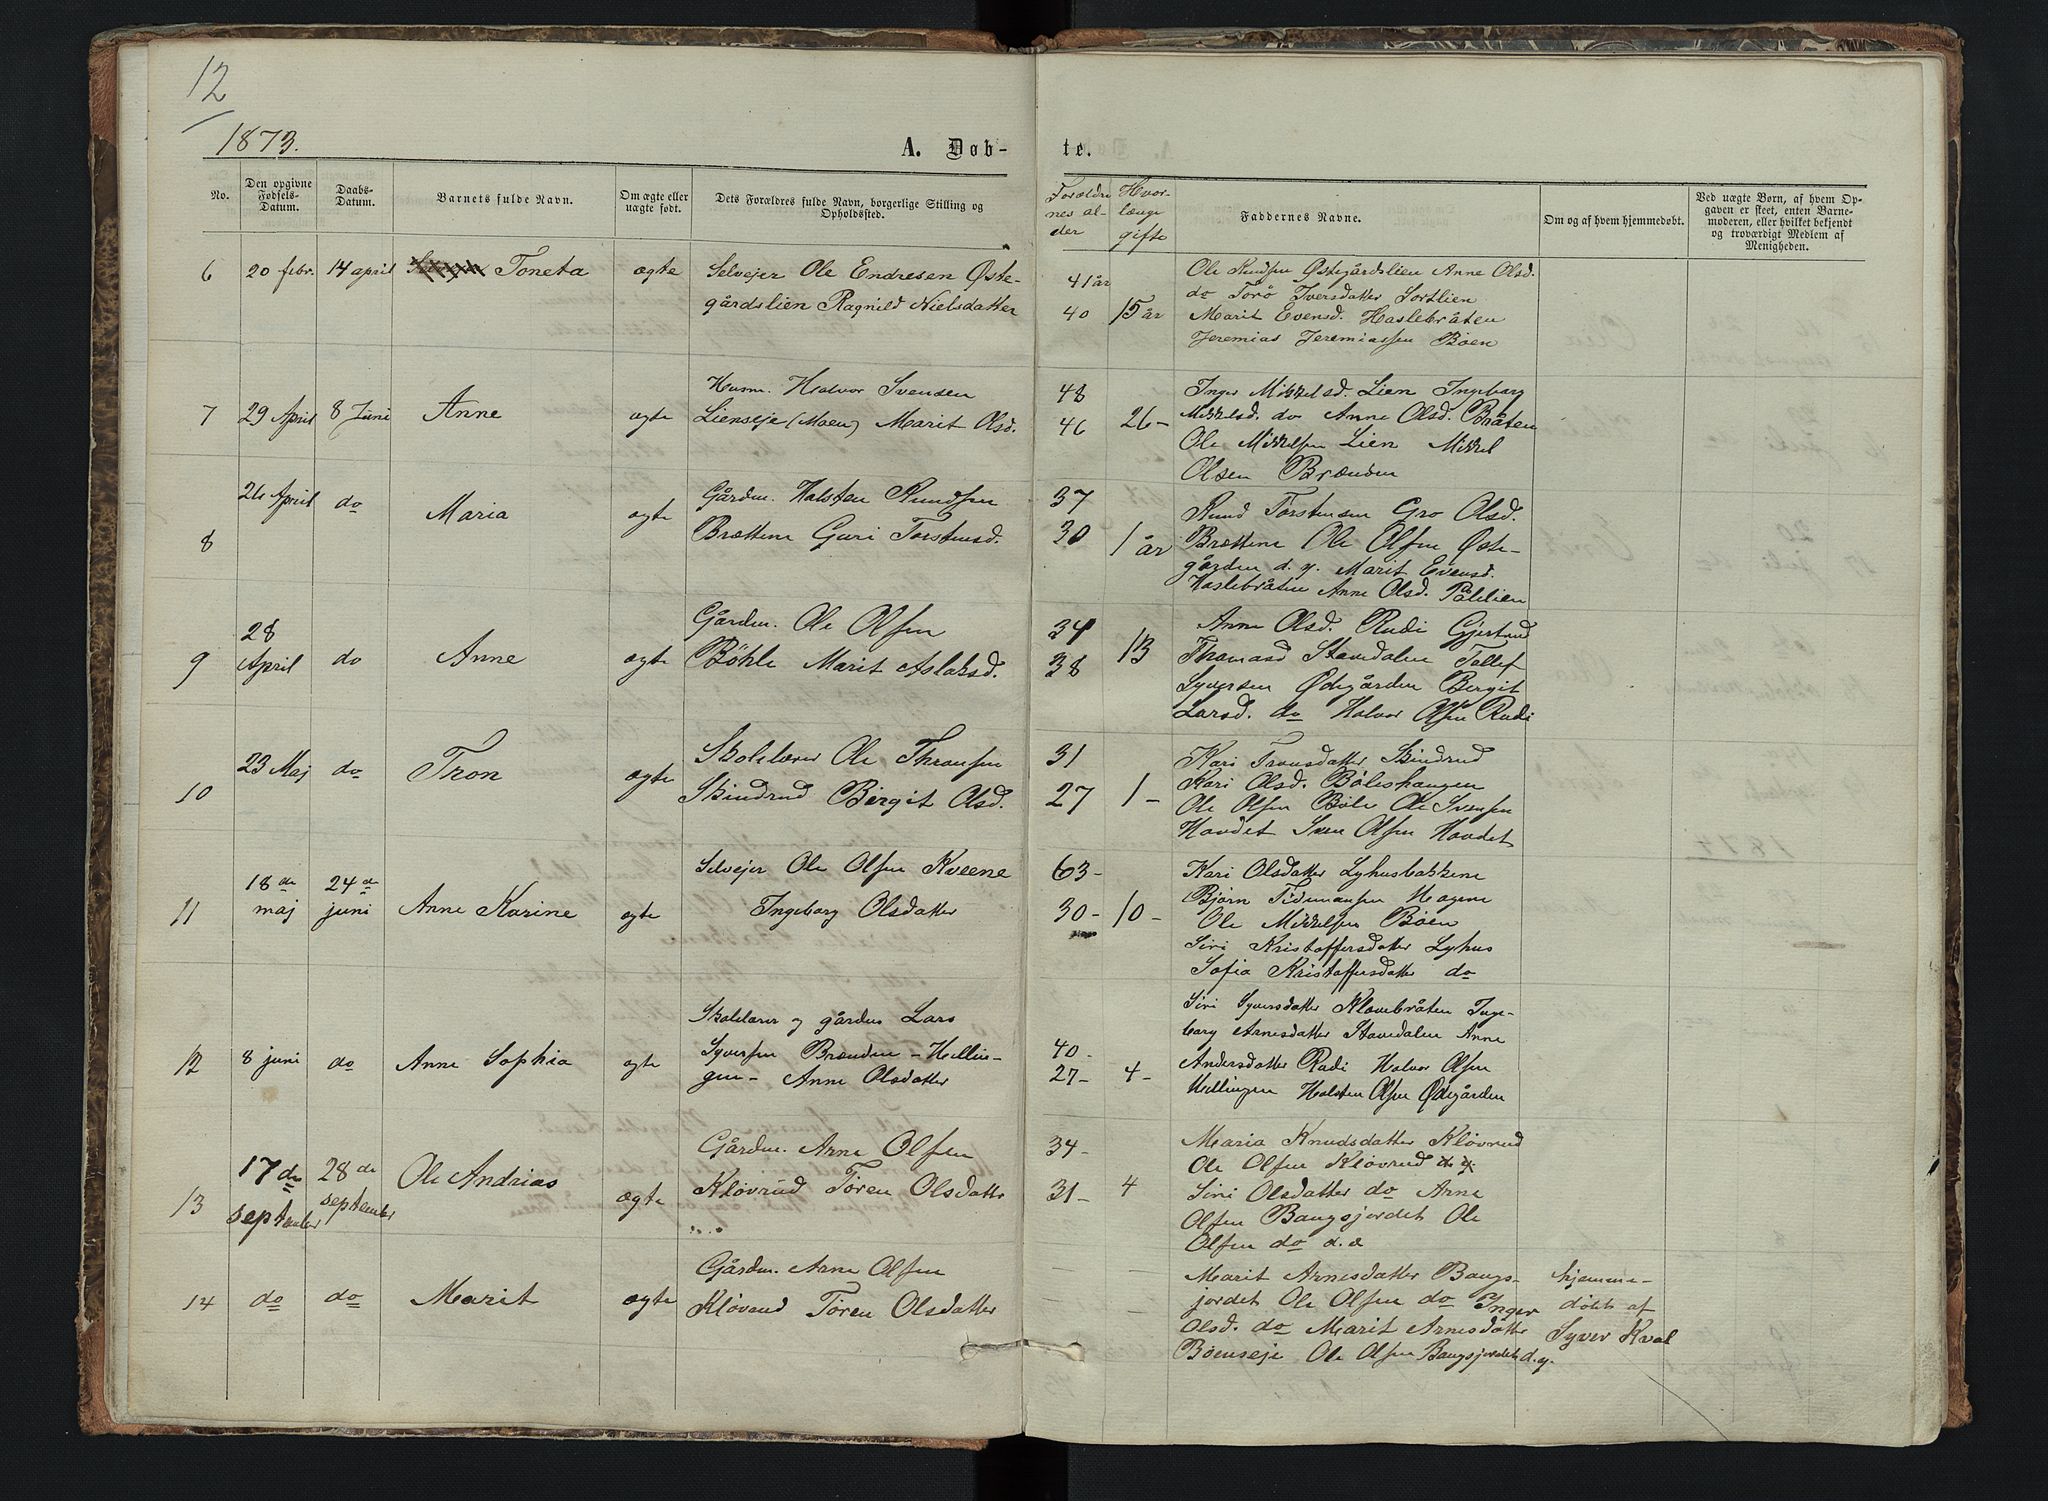 12
1873.
A. Døb-
te.
No.
Den opgivne Fødsels-Datum.
Daabs-Datum.
Barnets fulde Navn.
Om ægte eller uægte født.
Dets Forældres fulde Navn, borgerlige Stilling og Opholdssted.
Forældrenes alder
Hvorlænge gifte
Faddernes Navne.
Om og af hvem hjemmedøbt.
Ved uægte Børn, af hvem Opgaven er skeet, enten Barnemoderen, eller hvilket bekjendt og troværdigt Medlem af Menigheden.
6 20 febr. 14 april Toneta ægte
Selvejer Ole Endresen Øste-
gårdslien Ragnild Nielsdatter
41 år
40 15 år
Ole Knudsen Østegårdslien Anne Olsd.
do Torø Iversdatter Sortlien
Marit Evensd. Haslebråten
Jeremias Jeremiassen Böen
7 29 April 8 Juni Anne ægte
Husm. Halvor Svensen
Lienseje (Moen) Marit Olsd.
48
46 26-
Inger Mikkelsd. Lien Ingeborg
Mikkelsd. do Anne Olsd. Bråten
Ole Mikkelsen Lien Mikkel
Olsen Brænden
8 26 April do Maria ægte
Gårdm. Halsten Knudsen
Brættene Guri Torstensd.
37
30 1 år
Knud Torstensen Gro Olsd.
Brættene Ole Olsen Øste-
gården d. y. Marit Evensd.
Haslebråten Anne Olsd. Pålslien
9 28 April do Anne ægte
Gårdm. Ole Olsen
Böhle Marit Aslaksd.
34
38 13
Anne Olsd. Rudi Gjertrud
Thomasd Stavedalen Tollef
Syversen Ødegården Bergit
Larsd. do Halvor Olsen Rudi
10 23 Maj do Tron ægte
Skolelærer Ole Thronsen
Skindrud Birgit Olsd.
31
27 1-
Kari Tronsdatter Skindrud
Kari Olsd. Böleshaugen
Ole Olsen Böle Ole Svensen
Hovdet Sven Olsen Hovdet
11 18de maj 24de juni Anne Karine ægte
Selvejer Ole Olsen Kveene
Ingeborg Olsdatter
63-
30- 10-
Kari Olsdatter Lyhusbakkene
Bjørn Tidemansen Hagene
Ole Mikkelsen Böen
Siri Kristoffersdatter Lyhus
Sofia Kristoffersdatter do
12 8 juni do Anne Sophia ægte
Skolelærer og gårdm Lars
Syversen Brænden - Hellin-
gen - Anne Olsdatter
40-
27- 4-
Siri Syversdatter Klovebråten Inge-
borg Arnesdatter Stavedalen Anne
Andersdatter Rudi Halvor Olsen
Hellingen Halsten Olsen Ødegården
13 17de september 28de september Ole Andrias ægte
Gårdm. Arne Olsen
Kløvrud Tören Olsdatter
34-
31- 4
Maria Knudsdatter Kløvrud
Ole Olsen Kløvrud
Siri Olsdatter do Arne
Olsen Bangsjordet Ole
Olsen do d. æ
14 do do Marit ægte
Gårdm. Arne Olsen
Kløvrud Tören Olsdatter
Marit Arnesdatter Bangs-
jordet Ole Olsen do Inger
Olsd. do Marit Arnesdatter
Böenseje Ole Olsen Bangsjordet d. y.
hjemme-
döbt af
Syver Kval